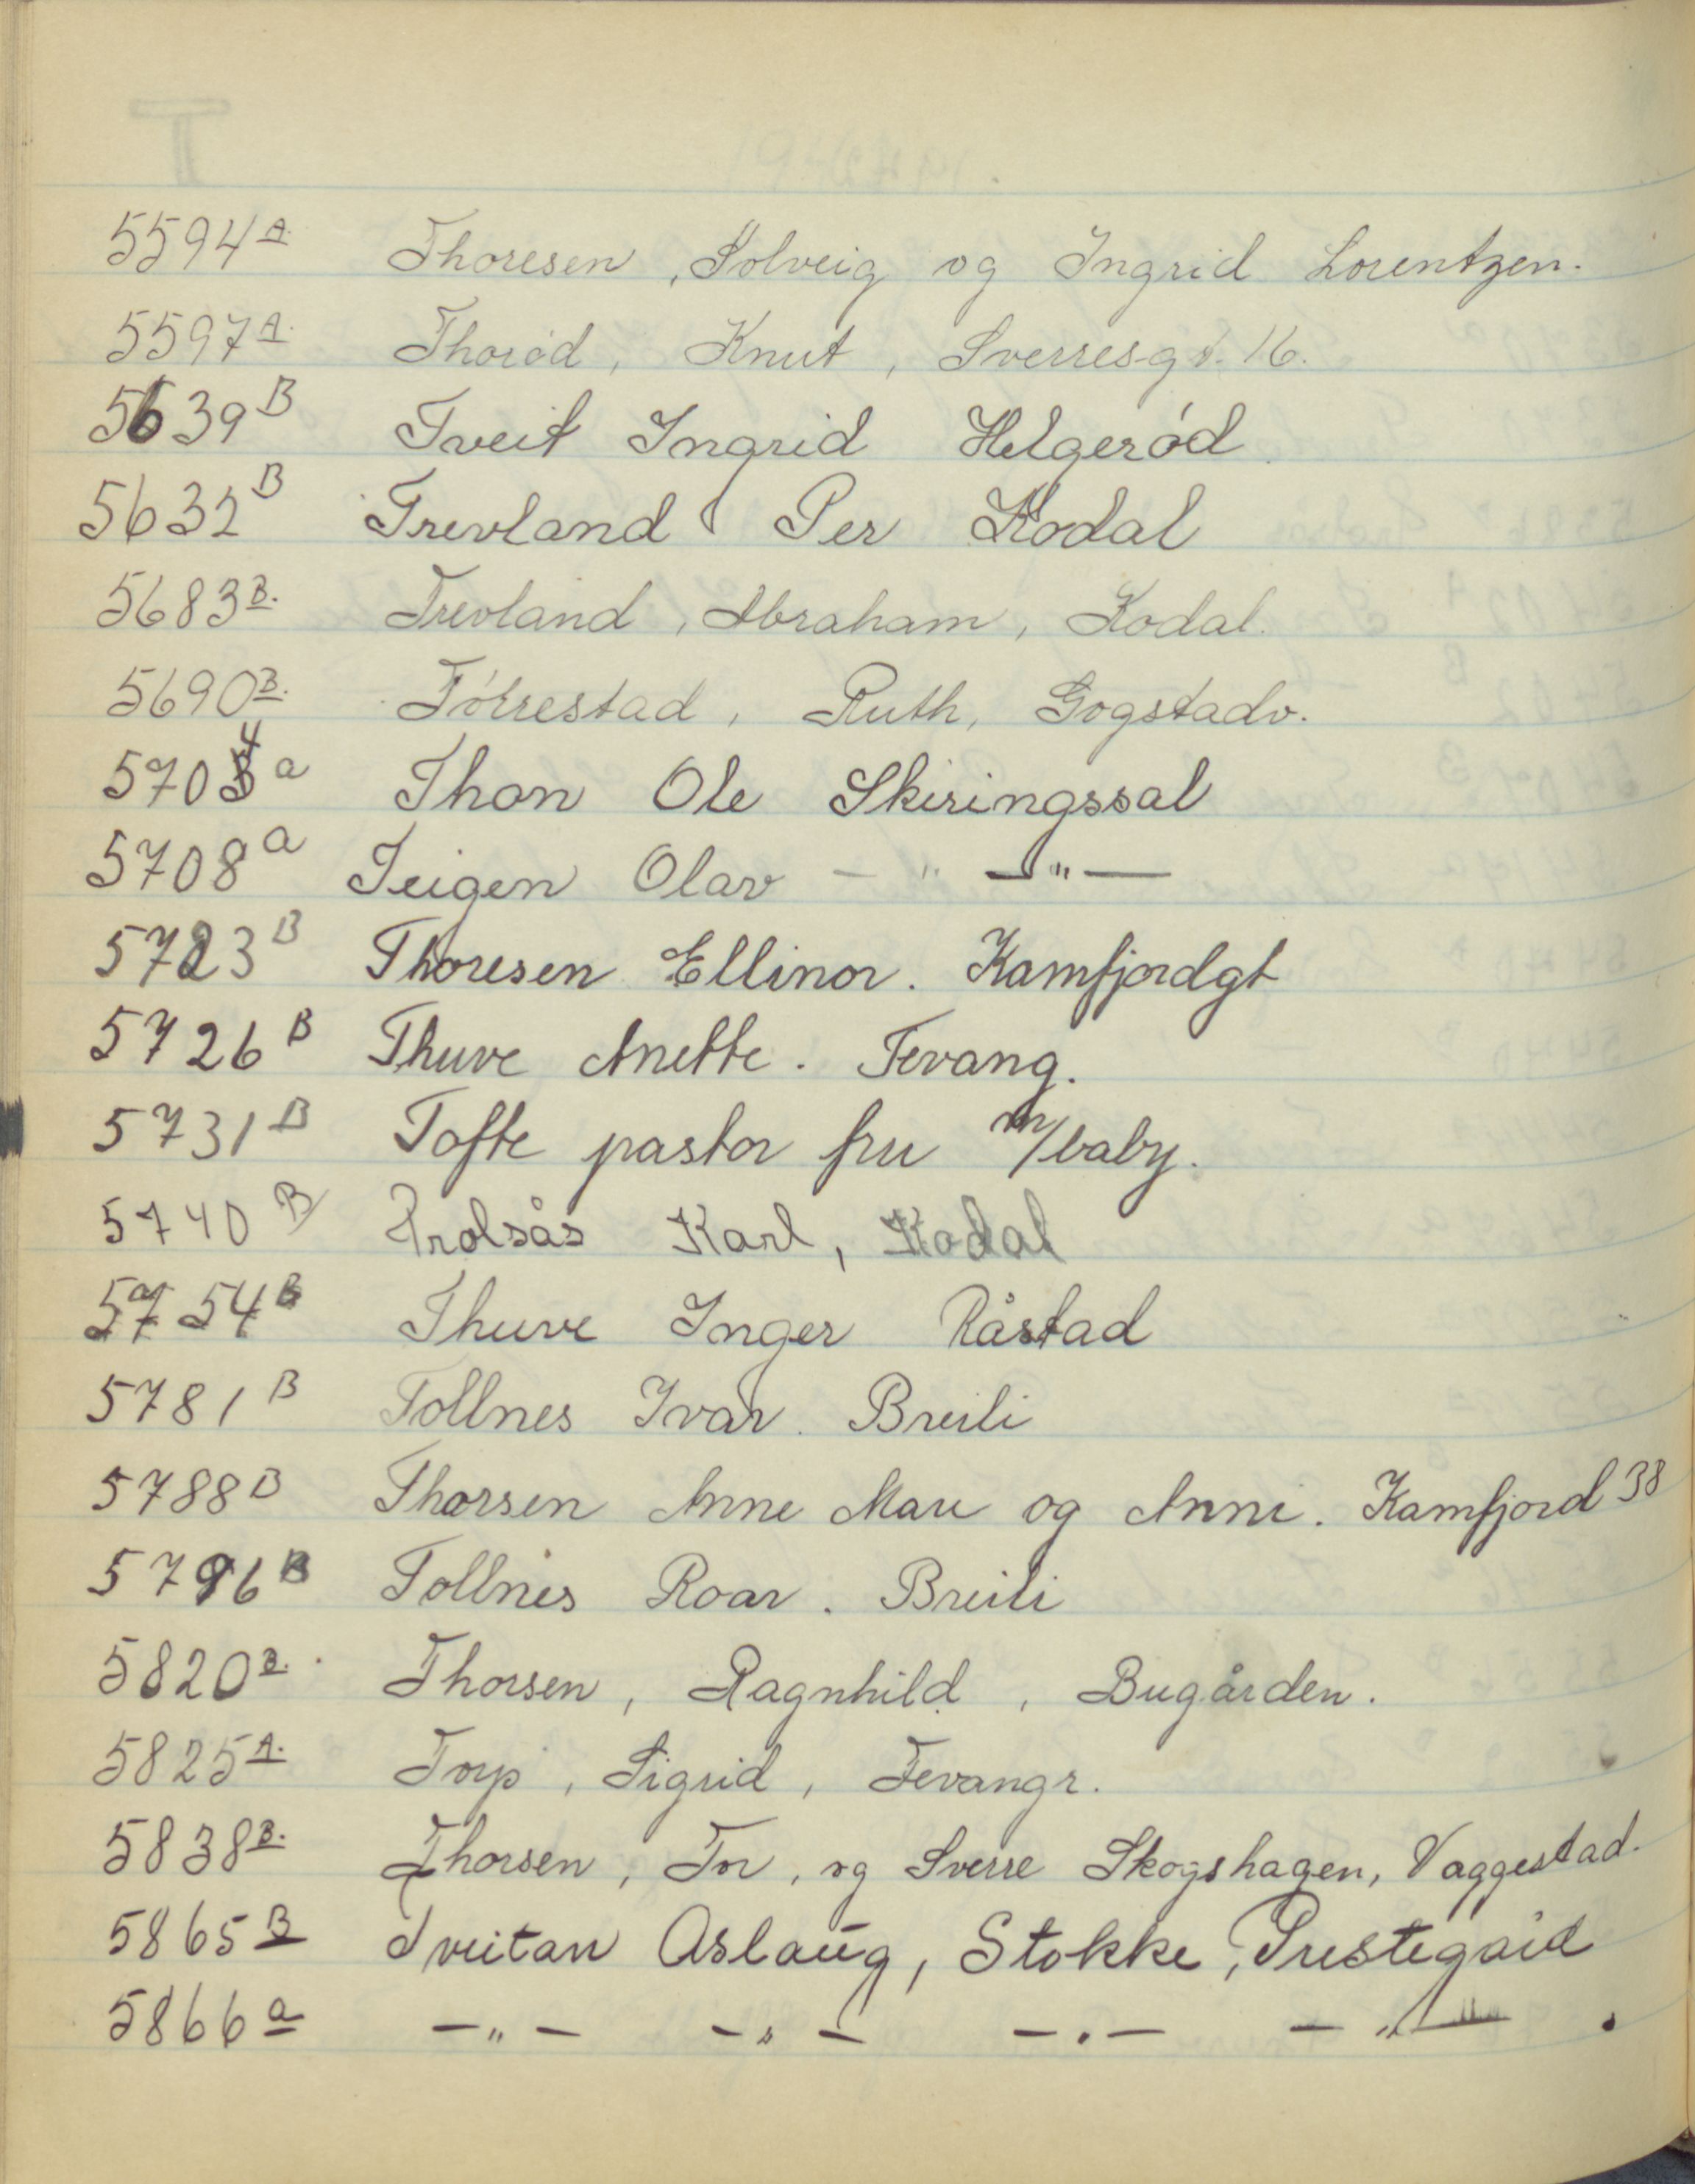 5594 A. Thoresen, Solveig og Ingrid Lorentzen.
5597 A. Thorød, Knut, Sverresgt. 16.
5639 B Tveit Ingrid Helgerød.
5632 B Trevland Per Kodal
5683 B. Trevland, Abraham, Kodal.
5690 B. Tørrestad, Ruth, Gogstadv.
5704 a Thon Ole Skiringssal
5708 a Teigen Olav - " - " -
5723 B Thoresen Ellinor. Kamfjordgt
5726 B Thuve Anette. Tevang.
5731 B Tofte pastor fru m/baby.
5740 B Trolsås Karl, Kodal
5754 B Thuve Inger Råstad
5781 B Tollnes Ivar. Breili
5788 B Thorsen Anne Mari og Anni. Kamfjord 38
5796 B Tollnes Roar. Breili
5820 B. Thorsen, Ragnhild, Bugården.
5825 A. Torp, Sigrid, Fevangr.
5838 B. Thorsen, Tor, og Sverre Skogshagen, Vaggestad.
5865 B Tveitan Aslaug, Stokke, Prestegård
5866 a - " - - " - - " - - " - .